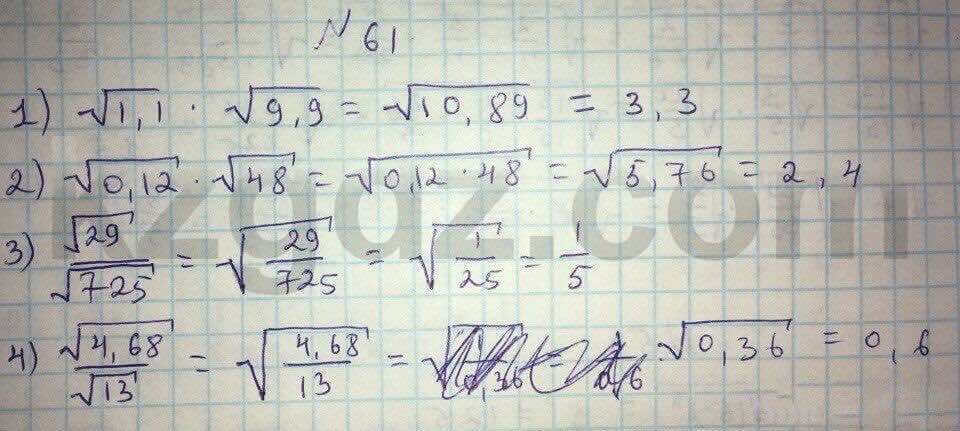 № 61
1) √1,1 · √9,9 = √10,89 = 3,3
2) √0,12 · √48 = √0,12·48 = √5,76 = 2,4
3) √29/√725 = √29/725 = √1/25 = 1/5
4) √4,68/√13 = √4,68/13 = √0,36 = 0,6